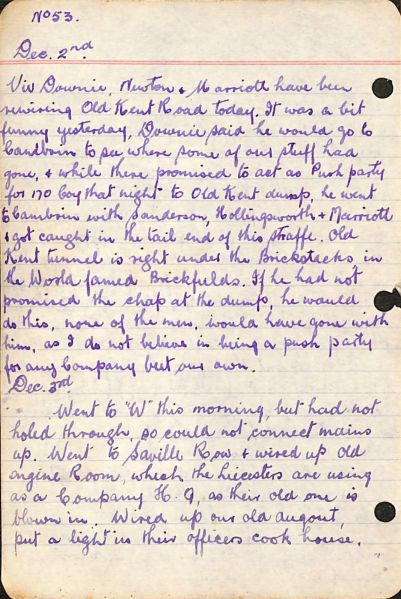 No 53.
Dec. 2nd
Viv Downie, Newton + Marriott have been
rewiring Old Kent Road today. It was a bit
funny yesterday, Downie said he would go to
Cambrin to see where some of our stuff had
gone, + while there promised to act as Push party
for 170 Coy that night to Old Kent dump, he went
to Cambrin with Sanderson, Hollingsworth + Marriott
+ got caught in the tail end of this straffe. Old
Kent tunnel is right under the Brickstacks in
the World famed Brickfields. If he had not
promised the chap at the dump, he would
do this, none of the men, would have gone with
him, as I do not believe in being a push party
for any Company but our own.
Dec. 3rd
Went to "W" this morning, but had not
holed through, so could not connect mains
up. Went to Saville Row + wired up old
engine Room, which the Leicesters are using
as a Company H.Q, as their old one is
blown in. Wired up our old dugout,
put a light in their officers cook house.